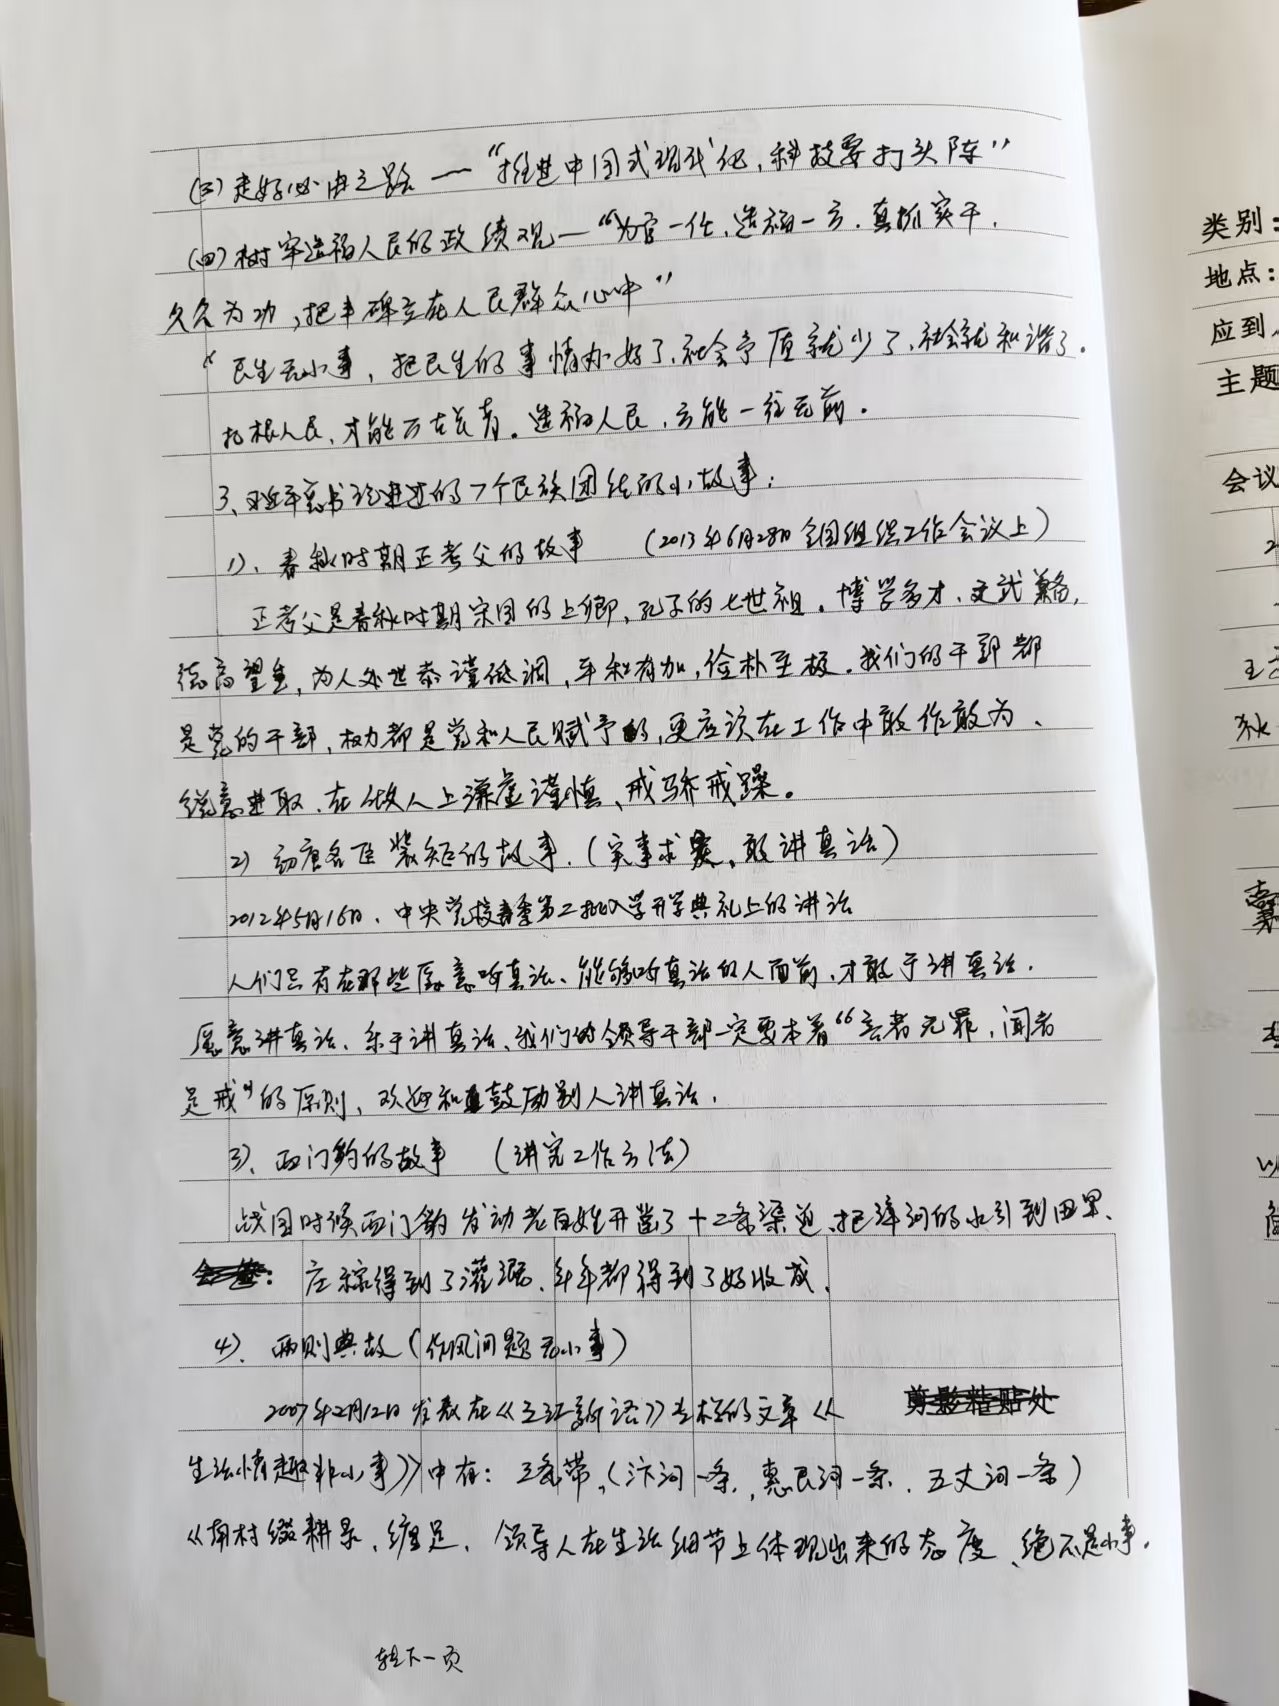 (三) 走好必由之路 — “推进中国式现代化,科技要打头阵”
(四) 树牢造福人民的政绩观 — “为官一任,造福一方,真抓实干,
久久为功,把丰碑立在人民群众心中”
“民生无小事,把民生的事情办好了,社会矛盾就少了,社会就和谐了.
扎根人民,才能 。造福人民,方能一往无前。
3、习近平总书记讲过的7个民族团结的小故事:
1)、春秋时期正考父的故事 (2013年6月28日全国组织工作会议上)
正考父是春秋时期宋国的上卿,孔子的七世祖。博学多才、文武兼备,
德高望重,为人处世恭谨低调,平和有加,俭朴至极。我们的干部都
是党的干部,权力都是党和人民赋予的,更应该在工作中敢作敢为、
锐意进取,在做人上谦虚谨慎、戒骄戒躁。
2) 初唐名臣裴矩的故事.(实事求是,敢讲真话)
2012年5月16日、中央党校春季第二批入学开学典礼上的讲话
人们只有在那些愿意听真话、能够听真话的人面前,才敢于讲真话,
愿意讲真话、乐于讲真话、我们的领导干部一定要本着“言者无罪,闻者
足戒”的原则,欢迎和鼓励别人讲真话.
3)、西门豹的故事 (讲究工作方法)
战国时候西门豹发动老百姓开凿了十二条渠道,把漳河的水引到田里、
庄稼得到了灌溉、年年都得到了好收成.
4)、两则典故(作风问题无小事)
2007年2月12日发表在《之江新语》专栏的文章《 剪影粘贴处
生活情趣非小事》中有:三条带,(汴河一条,惠民河一条,五丈河一条)
《南村辍耕录,缠足,领导人在生活细节上体现出来的态度、绝不是小事.
转下一页
类别:
地点:
应到
主题
会议